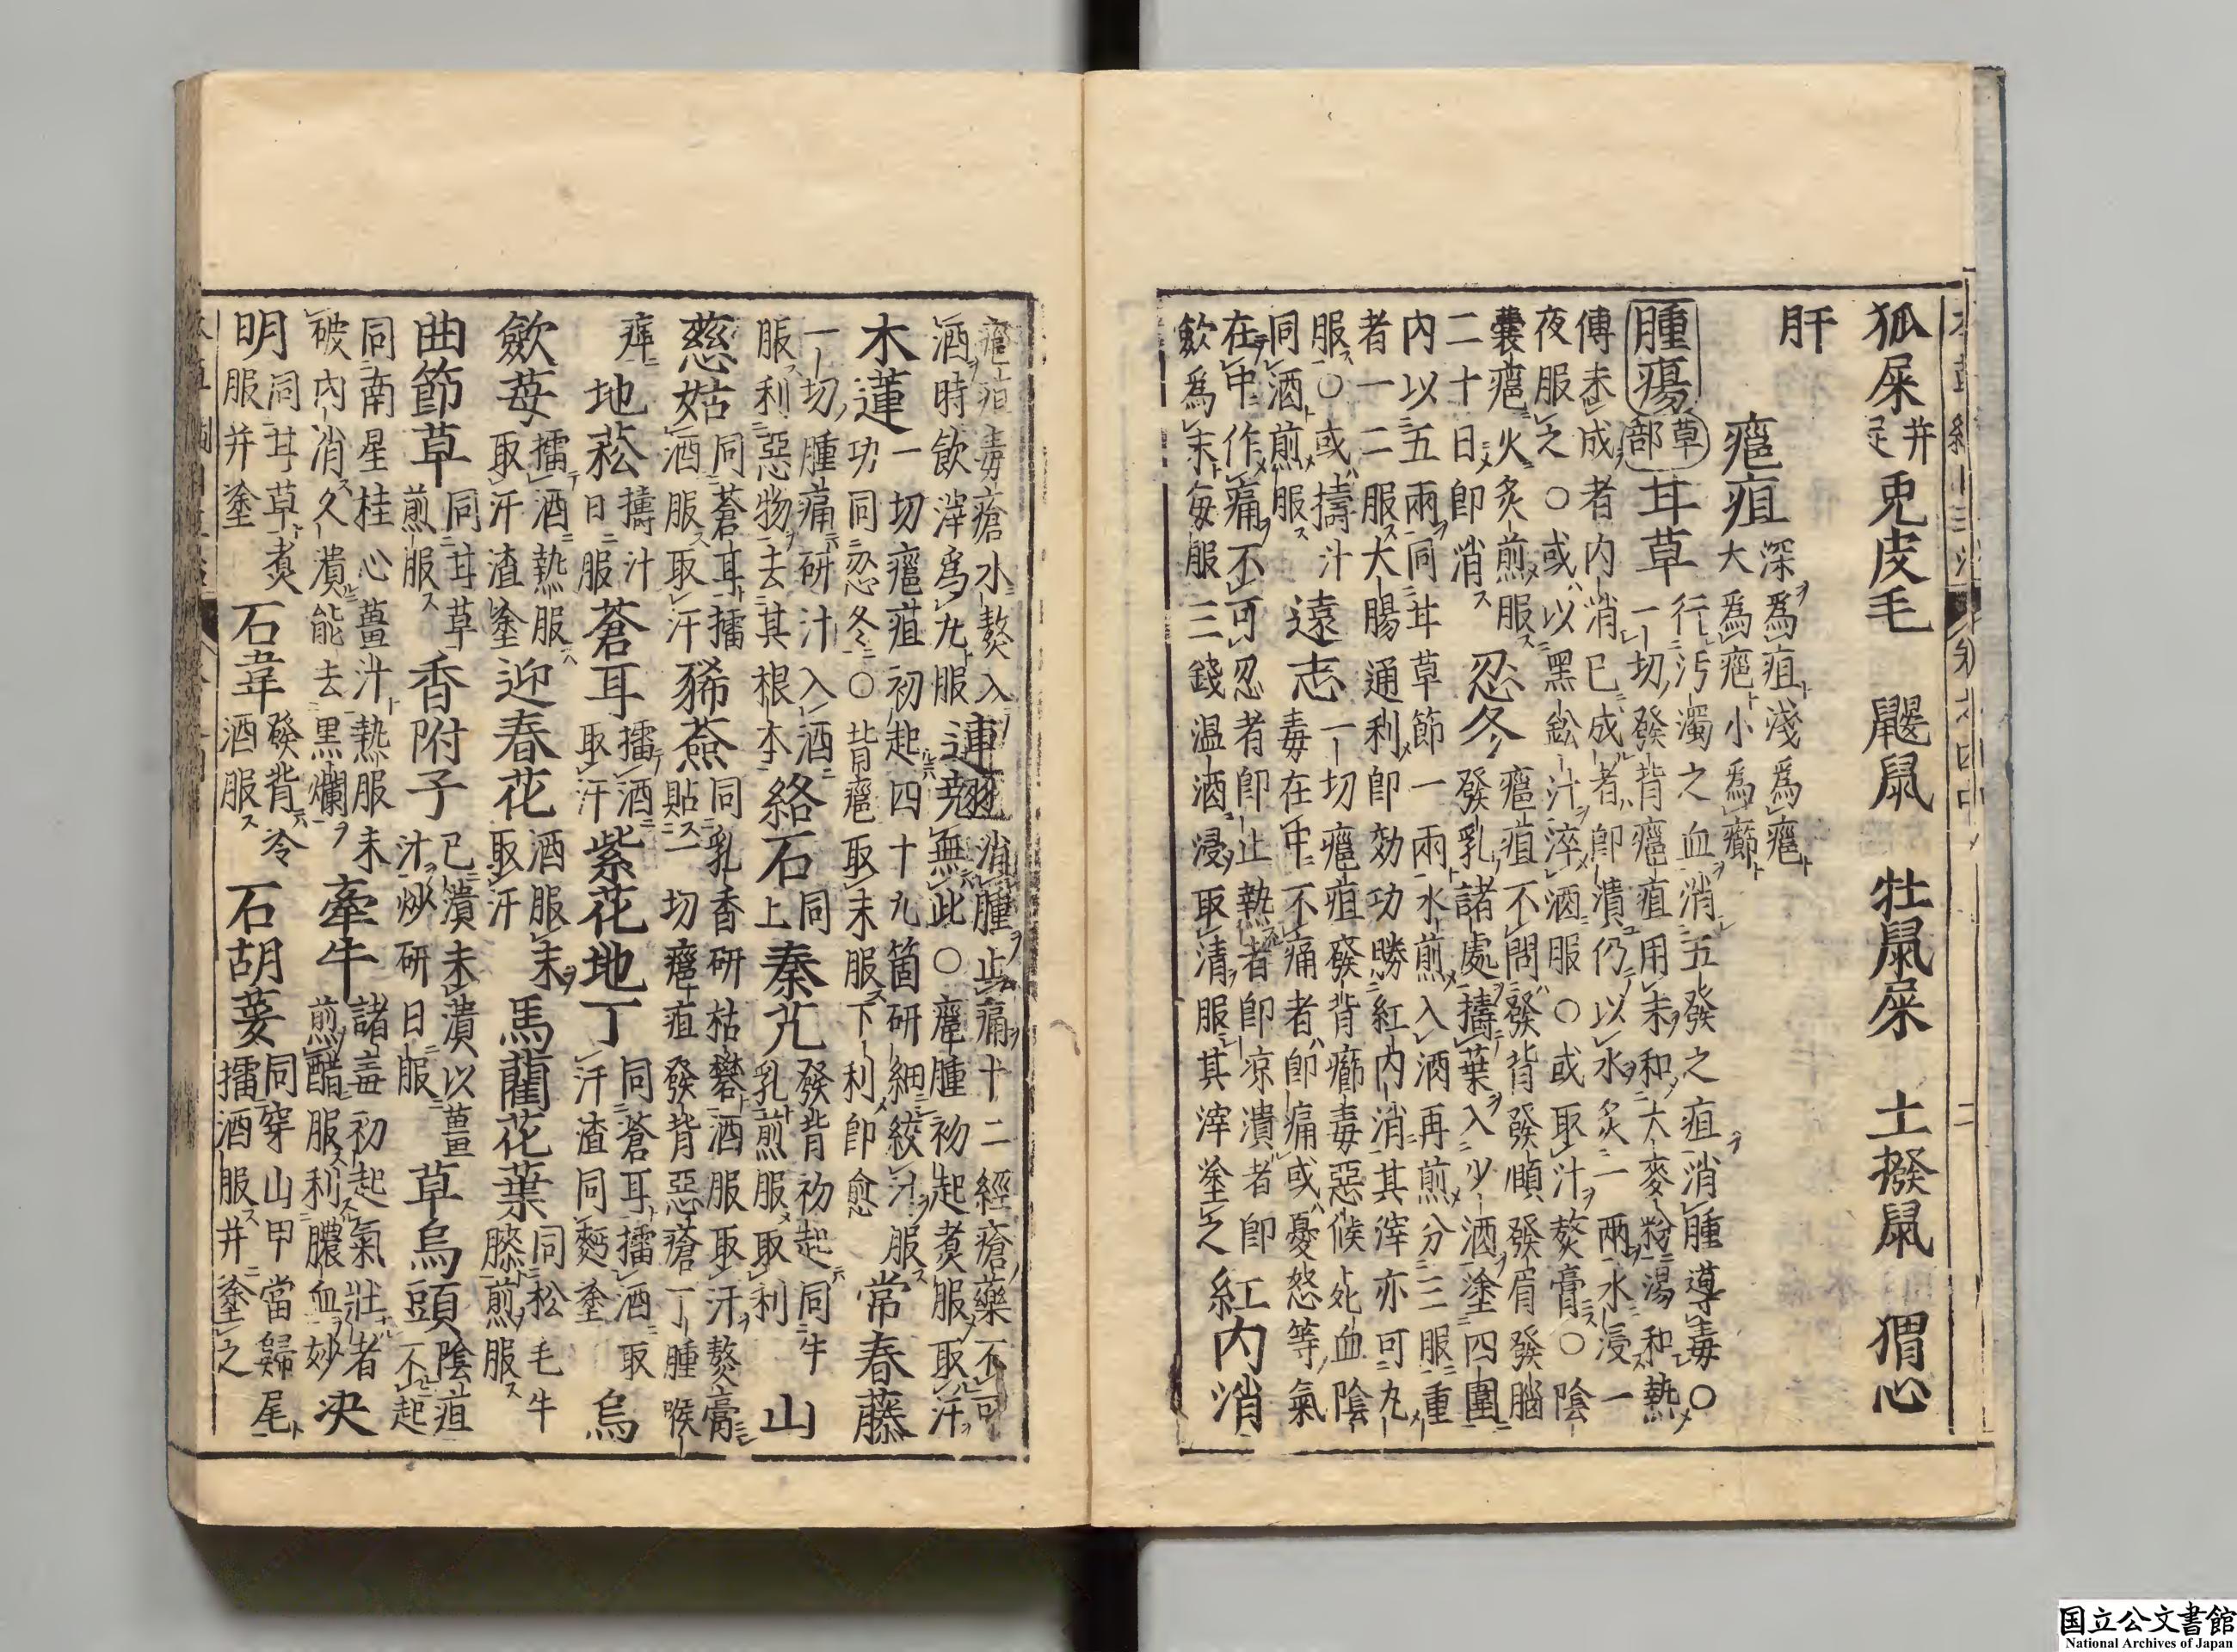 狐屎并足 兎皮毛 鼴鼠 牡鼠屎 土撥鼠 猬心
肝
癰疽 深爲疽淺爲癰
大爲癰小爲癤
腫瘍 草部 甘草 行汚濁之血消五發之疽消腫導毒○
一切發背癰疽用末和大麥粉湯和熱
傅未成者内消已成者即潰仍以水炙一兩水浸一
夜服之○或以黑鉛汁淬酒服○或取汁熬膏○陰
囊癰火炙煎服 忍冬 癰疽不問發背發頤發眉發腦
二十日即消 發乳諸處擣葉入少酒塗四圍
内以五兩同甘草節一兩水煎入酒再煎分三服重
者一二服大腸通利即効功勝紅内消其滓亦可丸
服○或擣汁 遠志 一切癰疽發背癤毒惡候死血陰
同酒煎服 毒在中不痛者即痛或憂怒等氣
在中作痛不可忍者即止熱者即凉潰者即
歛爲末毎服三錢温酒浸取清服其滓塗之 紅内消
癰疽毒瘡水熬入 連翹 消腫止痛十二經瘡藥不可
酒時飲滓爲丸服 無此○癰腫初起煑服取汗
木蓮 一切癰疽初起四十九箇研細絞汁服 常春藤
功同忍冬○背癰取末服下利即愈
一切腫痛研汁入酒 絡石 同上 秦艽 發背初起同牛 山
服利惡物去其根本 乳煎服取利
慈姑 同蒼耳擂 豨薟 同乳香研枯礬酒服取汗熬膏
酒服取汗 貼一切癰疽發背惡瘡丁腫喉
痺 地菘 擣汁 蒼耳 擂酒 紫花地丁 同蒼耳擂酒取 烏
日服 取汗 汗渣同麪塗
歛苺 擂酒熱服 迎春花 酒服末 馬藺花葉 同松毛牛
取汗渣塗 取汗 膝煎服
曲節草 同甘草 香附子 已潰末潰以薑 草烏頭 陰疽
煎服 汁炒研日服 不起
同南星桂心薑汁熱服末 牽牛 諸毒初起氣壯者 决
破内消久潰能去黒爛 煎醋服利膿血妙
明 同甘草煑 石韋 發背冷 石胡荽 同穿山甲當歸尾
服并塗 酒服 擂酒服并塗之
国立公文書館
National Archives of Japan